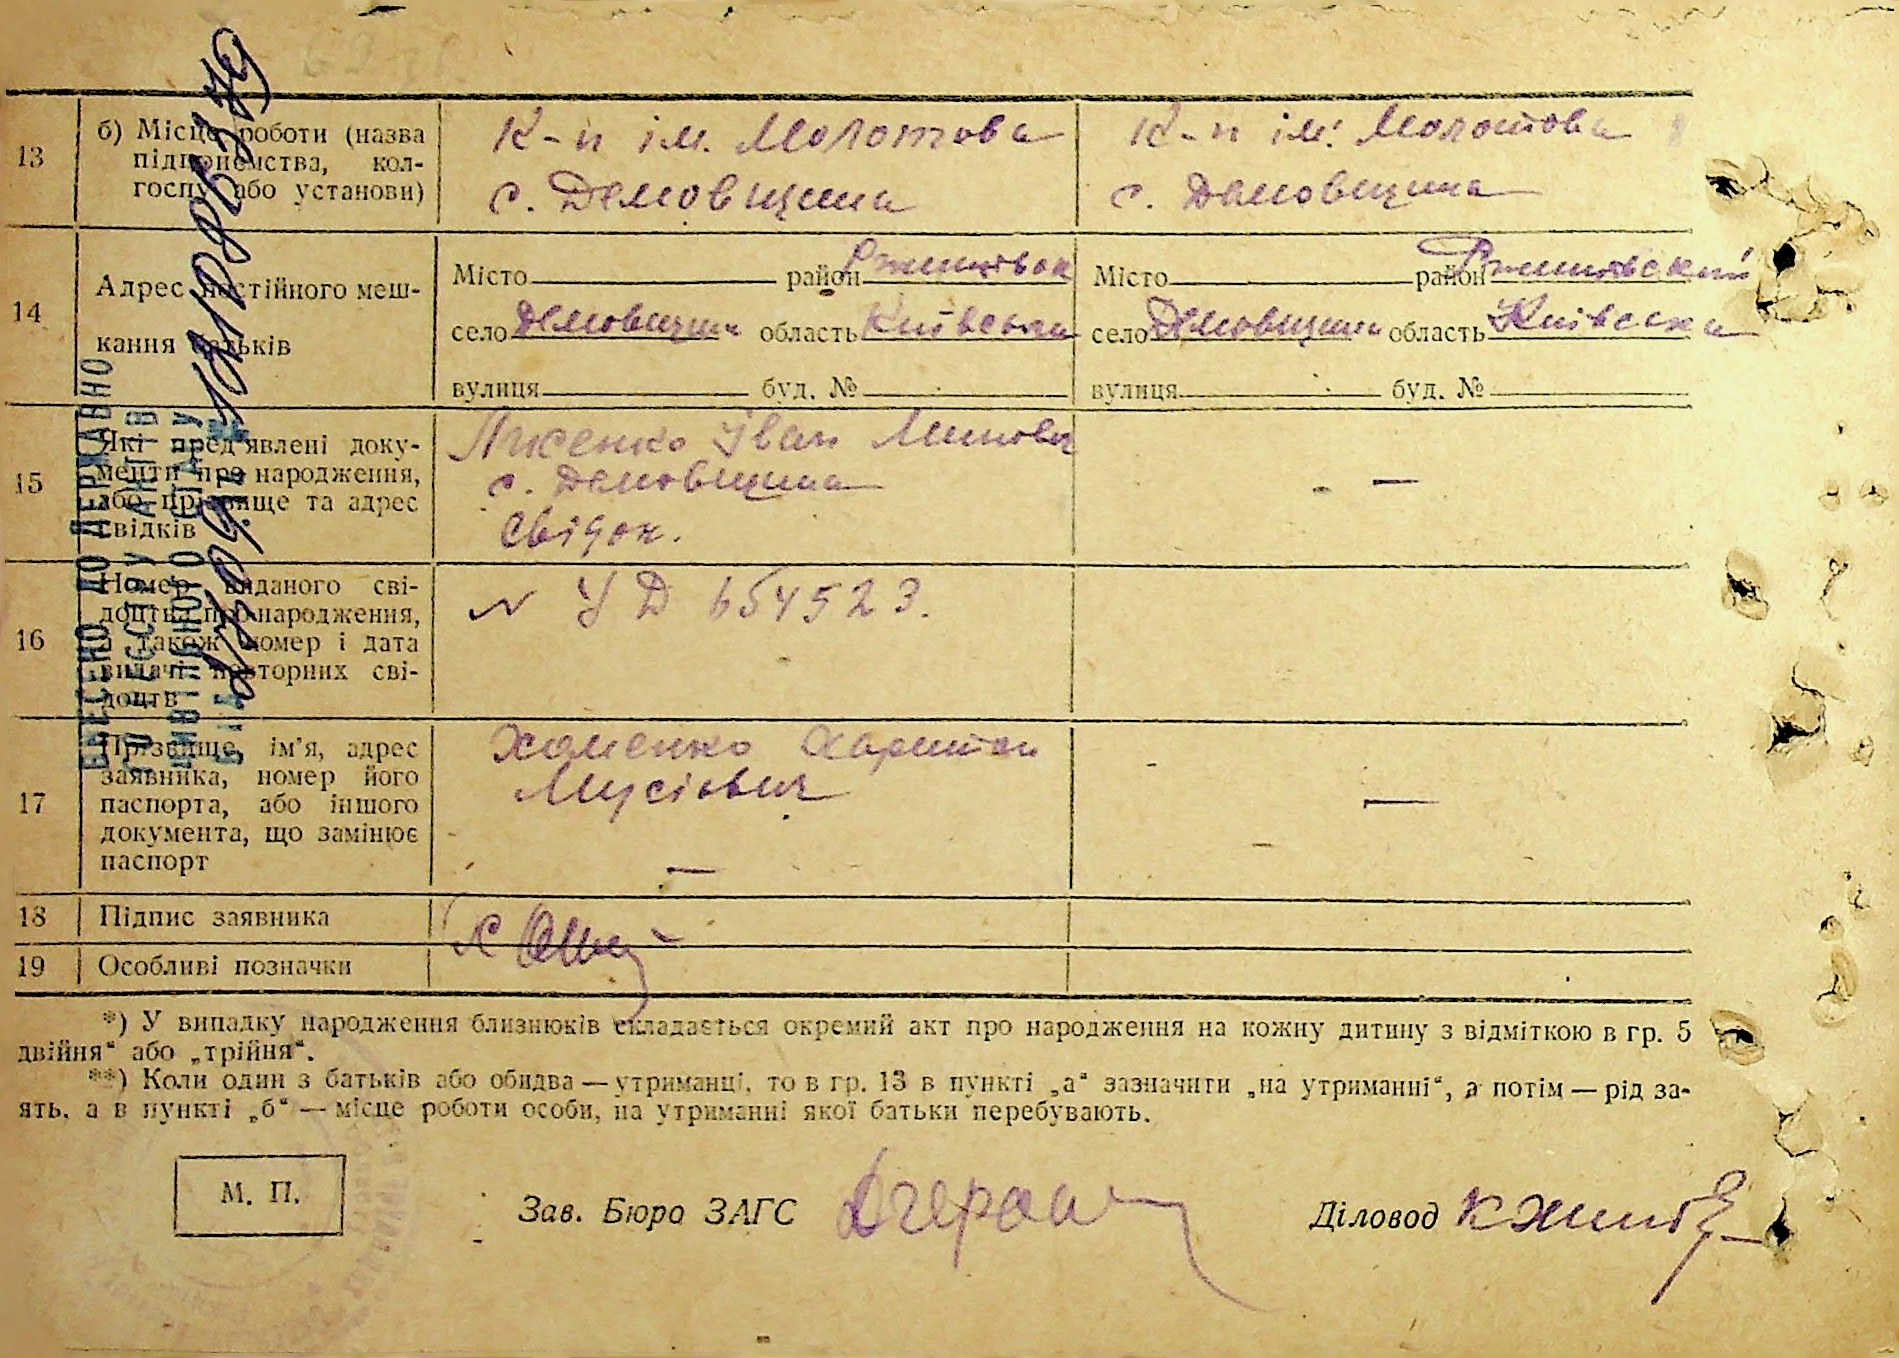 13
б) Місце роботи (назва
підприємства, кол-
госпу або установи)
К-п ім. Молотова
с. Демовщина
К-п ім. Молотова
с. Демовщина
14
Адрес постійного меш-
кання батьків
Місто район
село Демовщина область Київська
вулиця буд. №
Місто район Ржищівський
село Демовщина область Київська
вулиця буд. №
15
Які пред'явлені доку-
менти про народження,
або прізвище та адрес
свідків
Іван
с. Демовщина
Свідок.
—
16
Номер виданого сві-
доцтва про народження,
а також номер і дата
видачі повторних сві-
доцтв
N УД 654523.
17
Прізвище, ім'я, адрес
заявника, номер його
паспорта, або іншого
документа, що замінює
паспорт
Хоменко Харитон
Мусієвич
—
—
18
Підпис заявника
19
Особливі позначки
*) У випадку народження близнюків складається окремий акт про народження на кожну дитину з відміткою в гр. 5
двійня“ або „трійня“.
**) Коли один з батьків або обидва — утриманці, то в гр. 13 в пункті „а“ зазначити „на утриманні“, а потім — рід за-
ять, а в пункті „б“ — місце роботи особи, на утриманні якої батьки перебувають.
М. П.
Зав. Бюро ЗАГС
Діловод
ВНЕСЕНО ДО ДЕРЖАВНО
ГО РЕЄСТРУ АКТІВ
ЦИВІЛЬНОГО СТАНУ